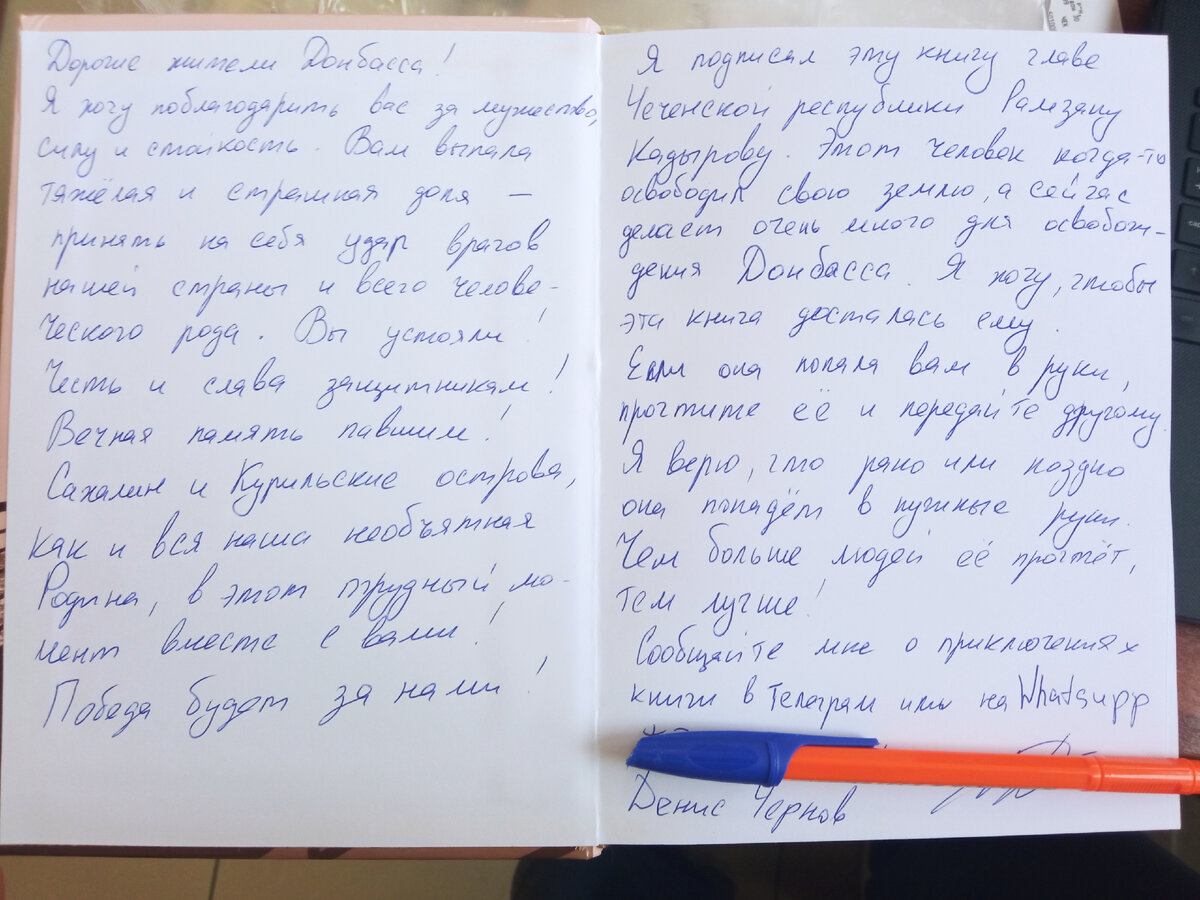 Дорогие жители Донбасса!
Я хочу поблагодарить вас за мужество,
силу и стойкость. Вам выпала
тяжёлая и страшная доля —
принять на себя удар врагов
нашей страны и всего челове-
ческого рода. Вы устояли!
Честь и слава защитникам!
Вечная память павшим!
Сахалин и Курильские острова,
как и вся наша необъятная
Родина, в этот трудный мо-
мент вместе с вами!
Победа будет за нами!
Я подписал эту книгу главе
Чеченской республики Рамзану
Кадырову. Этот человек когда-то
освободил свою землю, а сейчас
делает очень много для освобож-
дения Донбасса. Я хочу, чтобы
эта книга досталась ему.
Если она попала вам в руки,
прочтите её и передайте другому.
Я верю, что рано или поздно
она попадёт в нужные руки.
Чем больше людей её прочтёт,
тем лучше!
Сообщайте мне о приключениях
книги в Телеграм или на Whatsupp
Денис Чернов